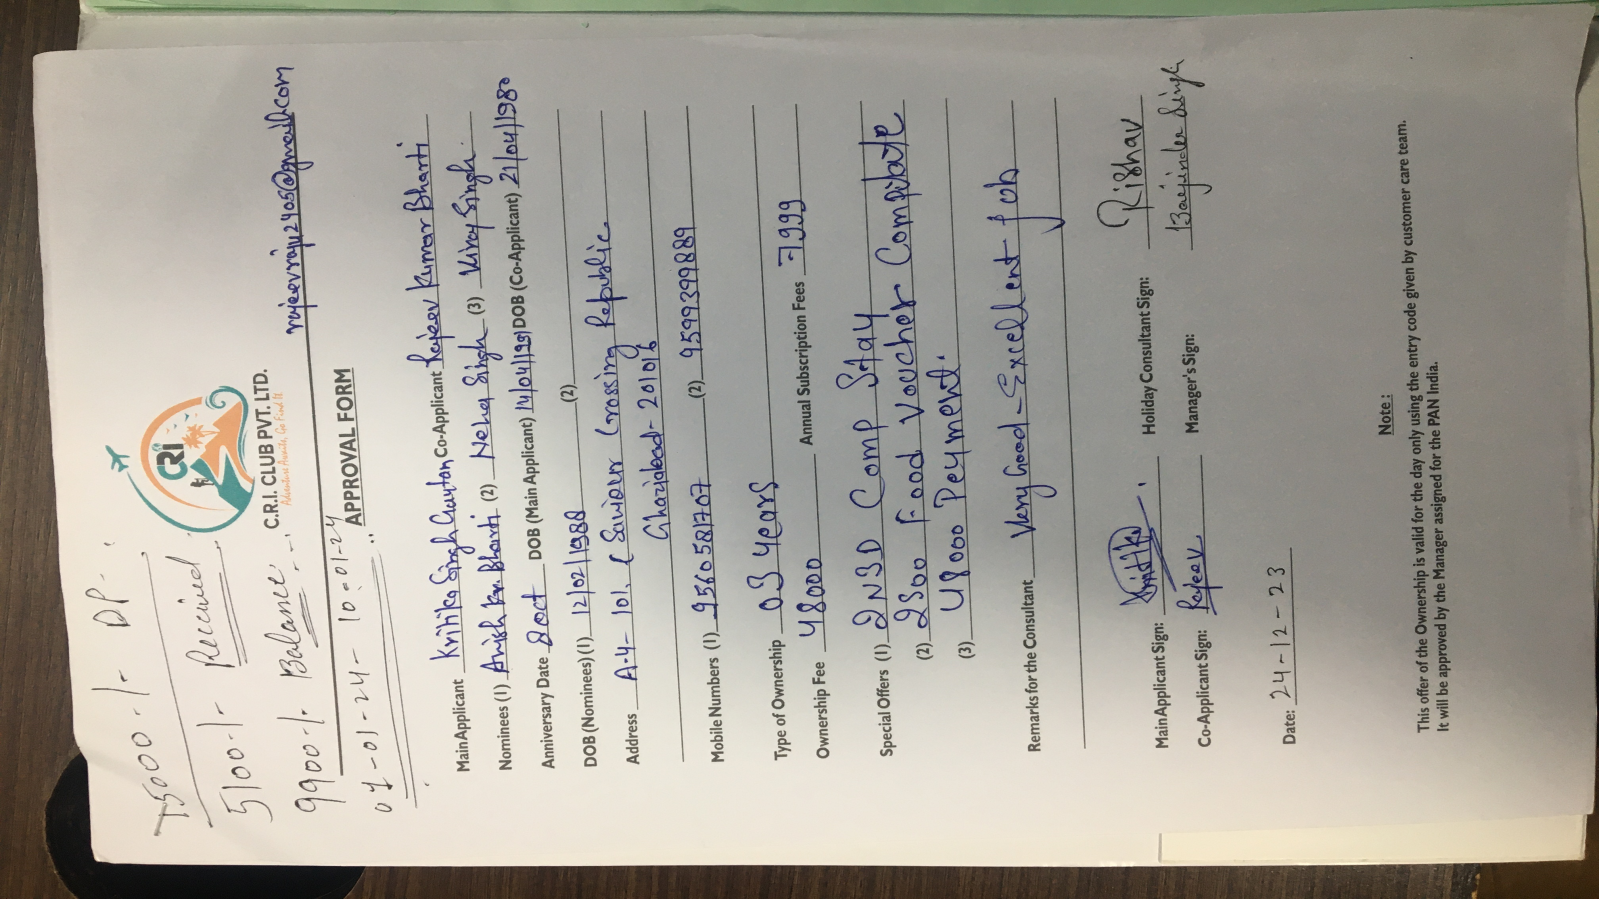 15000-/- DP.
5100-/- Received
9900-/- Balance
07-01-24 - 10-01-24
CRI
C.R.I. CLUB PVT. LTD.
Adventure Awaits, Go Find It
rajeevraju2405@gmail.com
APPROVAL FORM
Main Applicant Kritika Singh Co-Applicant Rajeev Kumar Bharti
Nominees (1) Anish kr. Bharti (2) Neha Singh (3) Viney Singh
Anniversary Date 8 oct DOB (Main Applicant) 14/04/1991 DOB (Co-Applicant) 21/04/1980
DOB (Nominees) (1) 12/02/1988 (2)
Address A-4-101, Saviour Crossing Republic
Ghaziabad-201016
Mobile Numbers (1) 9560581707 (2) 9599399889
Type of Ownership 03 years
Ownership Fee 48000 Annual Subscription Fees 7999
Special Offers (1) 2N3D Comp Stay
(2) 2500 Food Voucher Complbate
(3) 48000 Peyment.
Remarks for the Consultant Very Good - Excellent Job
Main Applicant Sign: Holiday Consultant Sign: Rishav
Co-Applicant Sign: Rajeev Manager's Sign: Barjinder Singh
Date: 24-12-23
Note :
This offer of the Ownership is valid for the day only using the entry code given by customer care team.
It will be approved by the Manager assigned for the PAN India.